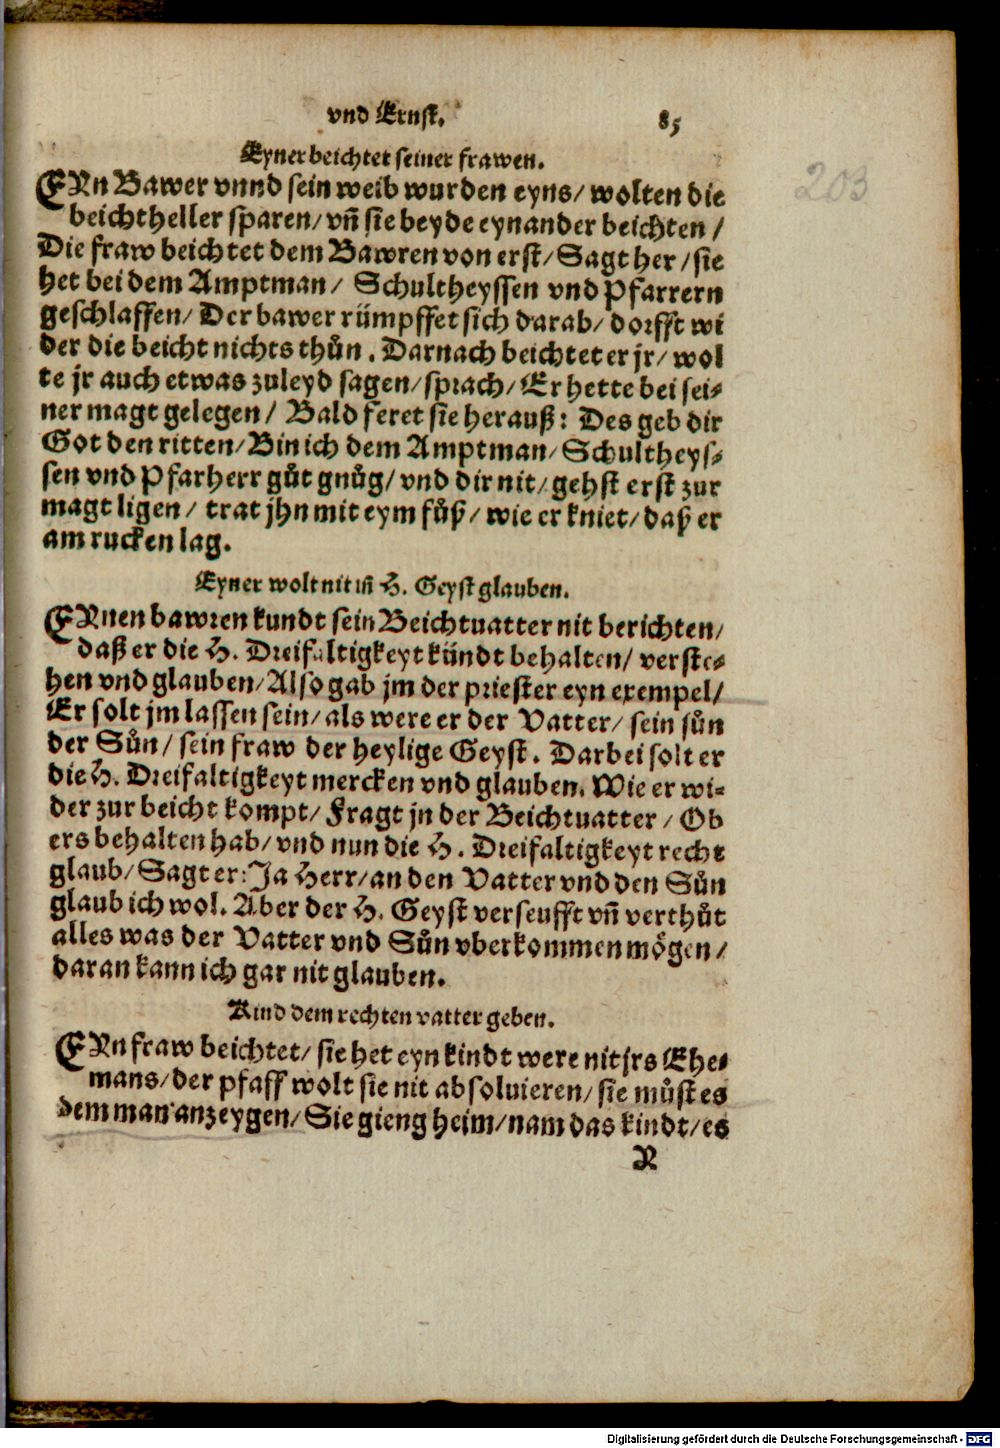 vnd Ernst. 85
203
Eyner beichtet seiner frawen.
EYn Bawer vnnd sein weib wurden eyns/ wolten die
beichtheller sparen/ vñ sie beyde eynander beichten /
Die fraw beichtet dem Bawren von erst/ Sagt her /sie
het bei dem Amptman/ Schultheyssen vnd Pfarrern
geschlaffen/ Der bawer rümpffet sich darab/ dorfft wi
der die beicht nichts thůn . Darnach beichtet er jr/ wol
te jr auch etwas zuleyd sagen/ sprach/ Er hette bei sei⸗
ner magt gelegen/ Bald feret sie herauß: Des geb dir
Got den ritten/ Bin ich dem Amptman/ Schultheys⸗
sen vnd Pfarherr gůt gnůg/ vnd dir nit/ gehst erst zur
magt ligen/ trat jhn mit eym fůß/ wie er kniet/ daß er
am rucken lag.
Eyner wolt nit in H. Geyst glauben.
EYnen bawren kundt sein Beichtuatter nit berichten/
daß er die H. Dreifaltigkeyt kündt behalten/ verste⸗
hen vnd glauben/ Also gab jm der priester eyn exempel/
Er solt jm lassen sein/ als were er der Vatter/ sein sůn
der Sůn/ sein fraw der heylige Geyst. Darbei solt er
die H. Dreifaltigkeyt mercken vnd glauben. Wie er wi⸗
der zur beicht kompt/ Fragt jn der Beichtuatter / Ob
ers behalten hab/ vnd nun die H. Dreifaltigkeyt recht
glaub/ Sagt er: Ja Herr/ an den Vatter vnd den Sůn
glaub ich wol. Aber der H. Geyst verseufft vñ verthůt
alles was der Vatter vnd Sůn vberkommen mögen/
daran kann ich gar nit glauben.
Kind dem rechten vatter geben.
EYn fraw beichtet/ sie het eyn kindt were nit jrs Ehe⸗
mans/ der pfaff wolt sie nit absoluieren/ sie můst es
dem man anzeygen/ Sie gieng heim/ nam das kindt/ es
N
Digitalisierung gefördert durch die Deutsche Forschungsgemeinschaft - DFG